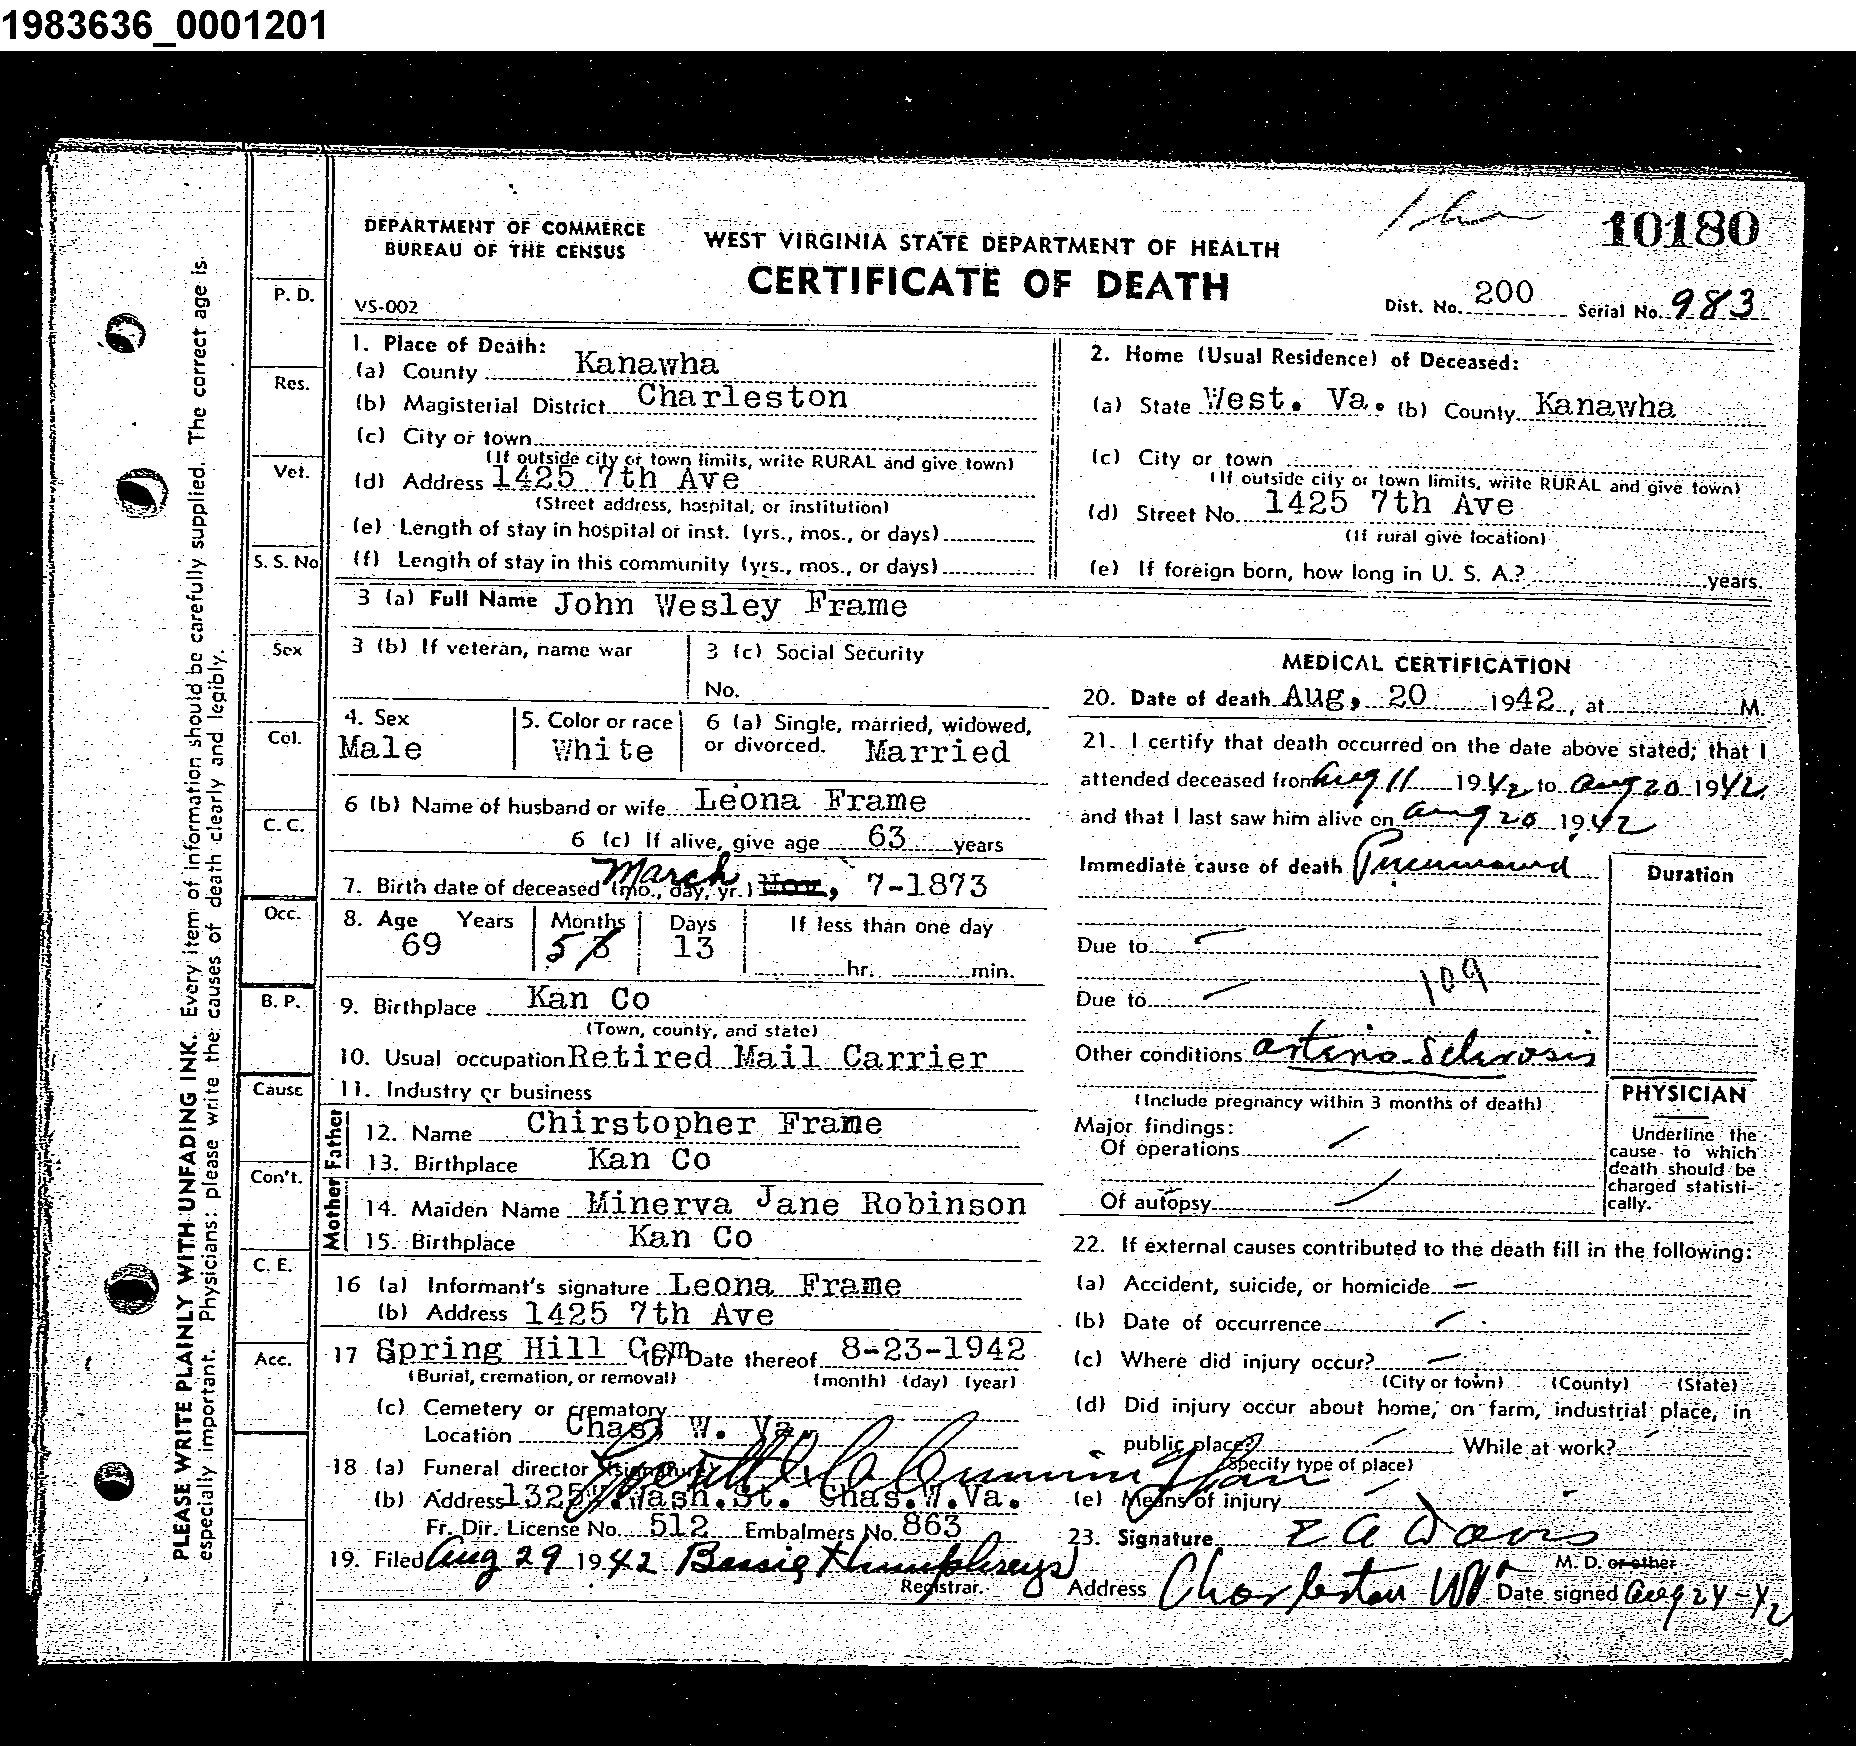 1983636_0001201
10180
DEPARTMENT OF COMMERCE
BUREAU OF THE CENSUS
WEST VIRGINIA STATE DEPARTMENT OF HEALTH
CERTIFICATE OF DEATH
VS-002
Dist. No. 200 Serial No. 983
1. Place of Death:
(a) County Kanawha
(b) Magisterial District Charleston
(c) City or town
(If outside city or town limits, write RURAL and give town)
(d) Address 1425 7th Ave
(Street address, hospital, or institution)
(e) Length of stay in hospital or inst. (yrs., mos., or days)
(f) Length of stay in this community (yrs., mos., or days)
2. Home (Usual Residence) of Deceased:
(a) State West. Va. (b) County Kanawha
(c) City or town
(If outside city or town limits, write RURAL and give town)
(d) Street No. 1425 7th Ave
(If rural give location)
(e) If foreign born, how long in U. S. A.? years.
3 (a) Full Name John Wesley Frame
3 (b) If veteran, name war
3 (c) Social Security
No.
4. Sex
Male
5. Color or race
White
6 (a) Single, married, widowed,
or divorced. Married
6 (b) Name of husband or wife Leona Frame
6 (c) If alive, give age 63 years
7. Birth date of deceased (mo., day, yr.) March Nov, 7-1873
8. Age Years Months Days If less than one day
69 5 3 13 hr. min.
9. Birthplace Kan Co
(Town, county, and state)
10. Usual occupation Retired Mail Carrier
11. Industry or business
Father
12. Name Chirstopher Frame
13. Birthplace Kan Co
Mother
14. Maiden Name Minerva Jane Robinson
15. Birthplace Kan Co
16 (a) Informant's signature Leona Frame
(b) Address 1425 7th Ave
17 Spring Hill Cem (b) Date thereof 8-23-1942
(Burial, cremation, or removal) (month) (day) (year)
(c) Cemetery or crematory
Location Chas. W. Va.
18 (a) Funeral director signature Cunningham
(b) Address 1325 W. Wash. St. Chas. W. Va.
Fr. Dir. License No. 512 Embalmers No. 863
19. Filed Aug 29 1942 Bessie Humphreys
Registrar.
MEDICAL CERTIFICATION
20. Date of death Aug, 20 1942, at M.
21. I certify that death occurred on the date above stated; that I
attended deceased from Aug 11 1942 to Aug 20 1942
and that I last saw him alive on Aug 20 1942
Immediate cause of death Pneumonia
Duration
Due to
109
Due to
Other conditions arterio sclerosis
(Include pregnancy within 3 months of death)
Major findings:
Of operations
Of autopsy
PHYSICIAN
Underline the
cause to which
death should be
charged statisti-
cally.
22. If external causes contributed to the death fill in the following:
(a) Accident, suicide, or homicide
(b) Date of occurrence
(c) Where did injury occur?
(City or town) (County) (State)
(d) Did injury occur about home, on farm, industrial place, in
public place? While at work?
(Specify type of place)
(e) Means of injury
23. Signature E A Davis
M. D. or other
Address Charleston W Va Date signed Aug 24-42
P. D.
Res.
Vet.
S. S. No
Sex
Col.
C. C.
Occ.
B. P.
Cause
Con't.
C. E.
Acc.
PLEASE WRITE PLAINLY WITH UNFADING INK. Every item of information should be carefully supplied. The correct age is
especially important. Physicians: please write the causes of death clearly and legibly.